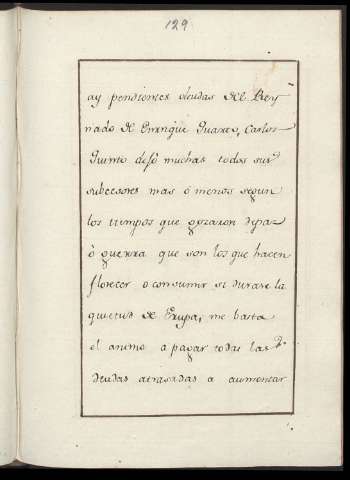 129
ay pendientes deudas del Rey
nado de Enrrique Quarto, Carlos
Quinto dejó muchas todos sus
subcesores mas ó menos segun
los tiempos que gozaron de paz
ó guerra que son los que hacen
florecer o consumir si durase la
quietud de Eurpa, me basta
el animo a pagar todas las
deudas atrasadas a aumentar